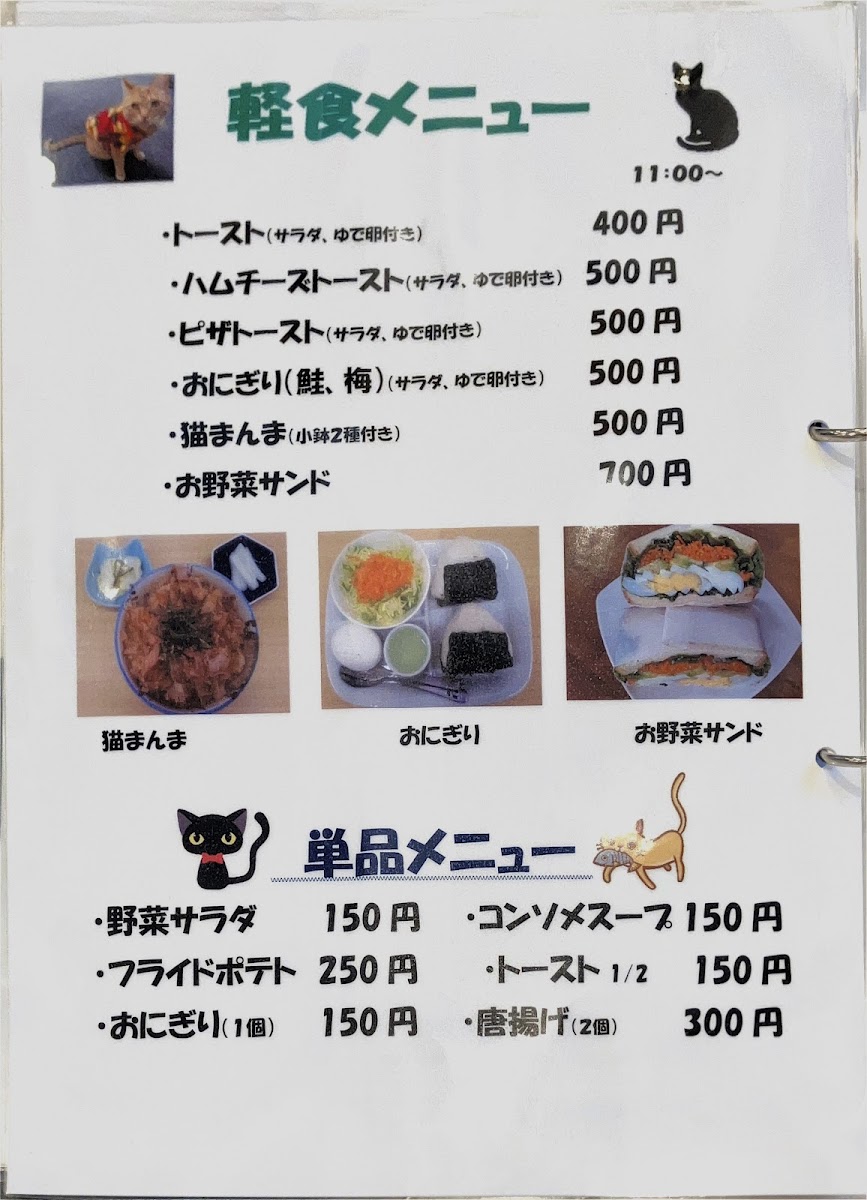 軽食メニュー
11:00～
・トースト(サラダ、ゆで卵付き) 400円
・ハムチーズトースト(サラダ、ゆで卵付き) 500円
・ピザトースト(サラダ、ゆで卵付き) 500円
・おにぎり(鮭、梅)(サラダ、ゆで卵付き) 500円
・猫まんま(小鉢2種付き) 500円
・お野菜サンド 700円
猫まんま おにぎり お野菜サンド
単品メニュー
・野菜サラダ 150円 ・コンソメスープ 150円
・フライドポテト 250円 ・トースト 1/2 150円
・おにぎり(1個) 150円 ・唐揚げ(2個) 300円